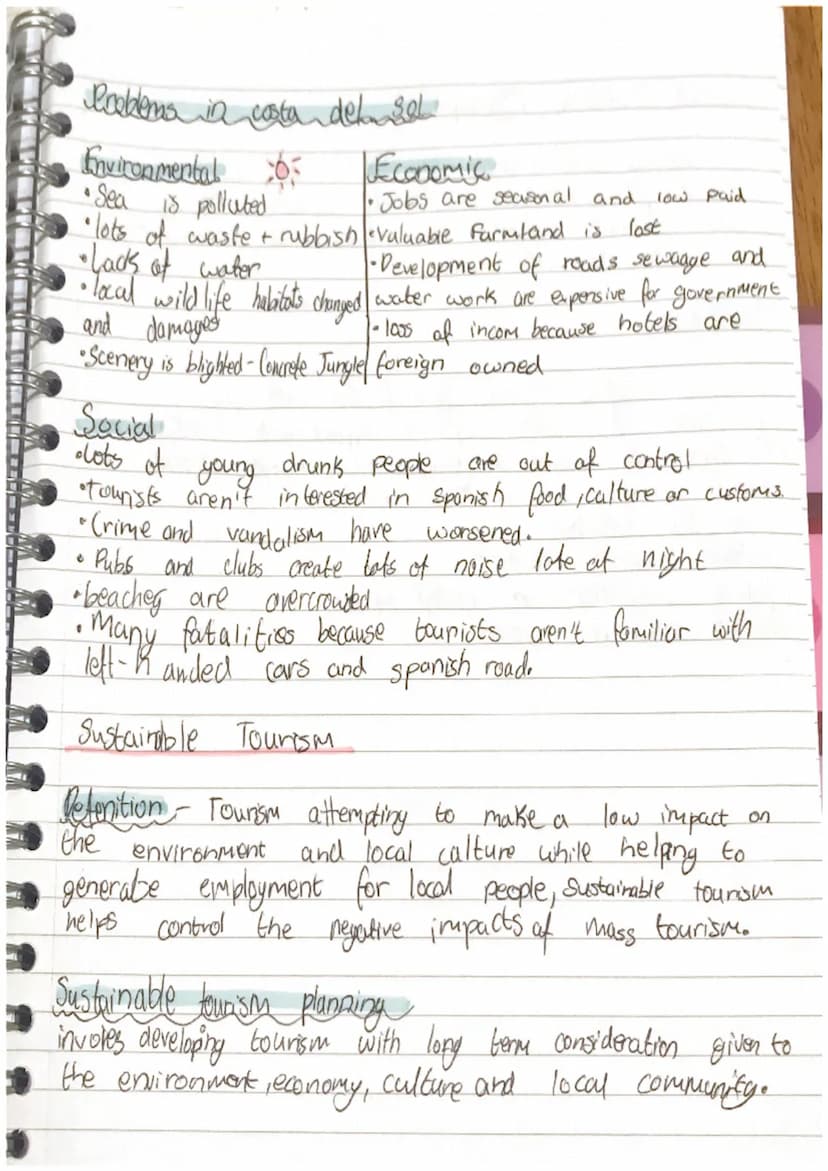 Problems in costa del sol
Environmental
• Sea is polluted
• lots of waste + rubbish
• Lack of water
• local wildlife habitats changed
and damages
• Scenery is blighted - Concrete Jungle
Economic
• Jobs are seasonal and low paid
• valuable farmland is lost
• Development of roads sewage and
water work are expensive for government
• loss of incom because hotels are
foreign owned
Social
• lots of young drunk people are out of control
• tourists aren't interested in spanish food, culture or customs.
• Crime and vandalism have worsened.
• Pubs and clubs create lots of noise late at night
• beaches are overcrowded
• Many fatalities because tourists aren't familiar with
left-handed cars and spanish road.
Sustainable Tourism
Defenition - Tourism attempting to make a low impact on
the environment and local calture while helping to
generate employment for local people, Sustainable tourism
helps control the negative impacts of mass tourism.
Sustainable tourism planning
involes developing tourism with long term consideration given to
the environment, economy, culture and local community.